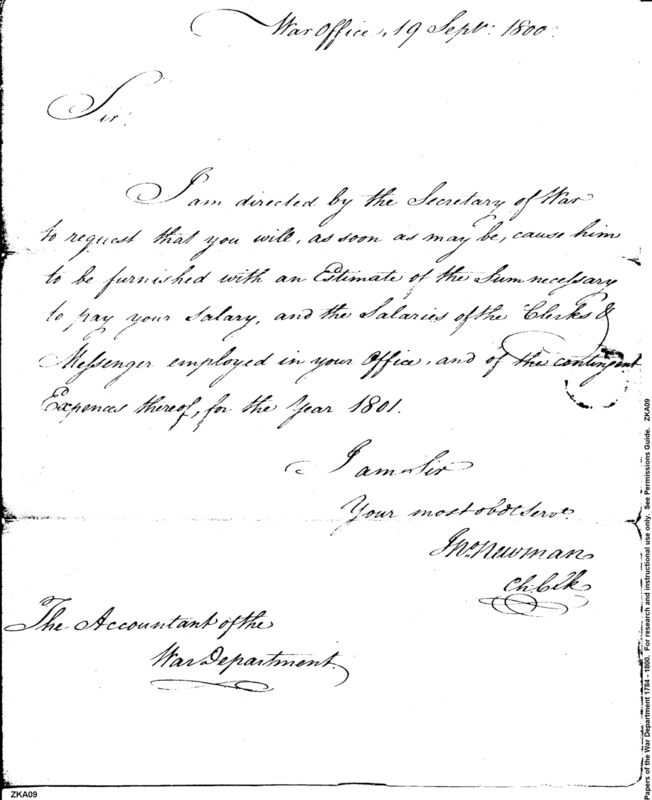 War Office, 19 Septr. 1800.
Sir,
I am directed by the Secretary of War
to request that you will, as soon as may be, cause him
to be furnished with an Estimate of the Sum necessary
to pay your Salary, and the Salaries of the Clerks &
Messenger employed in your Office, and of the contingent
Expences thereof, for the Year 1801.
I am Sir
Your most obdt Servt.
Jno. Newman
Ch Clk
The Accountant of the
War Department.
ZKA09
Papers of the War Department 1784 - 1800. For research and instructional use only. See Permissions Guide. ZKA09